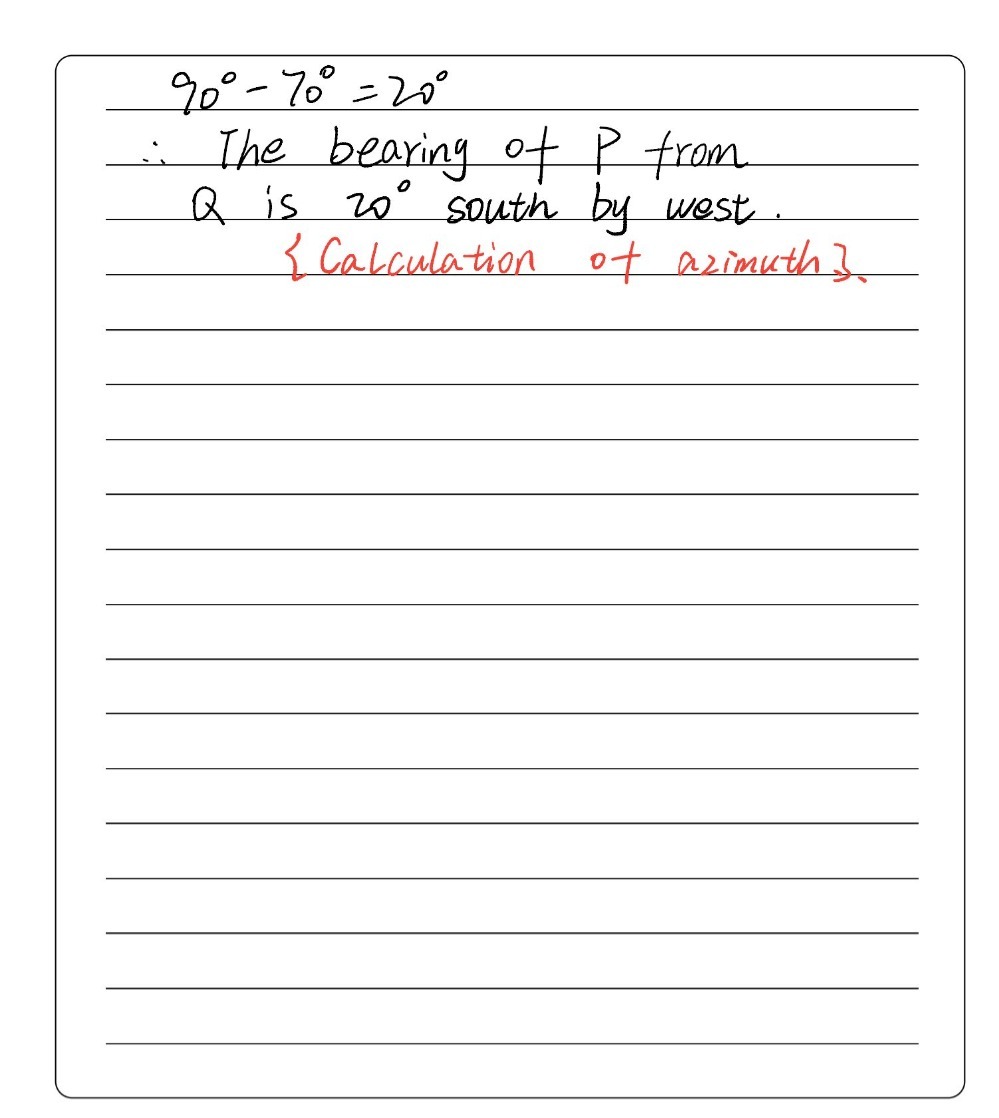 90° - 70° = 20°
∴ The bearing of P from
Q is 20° south by west.
{Calculation of azimuth}.